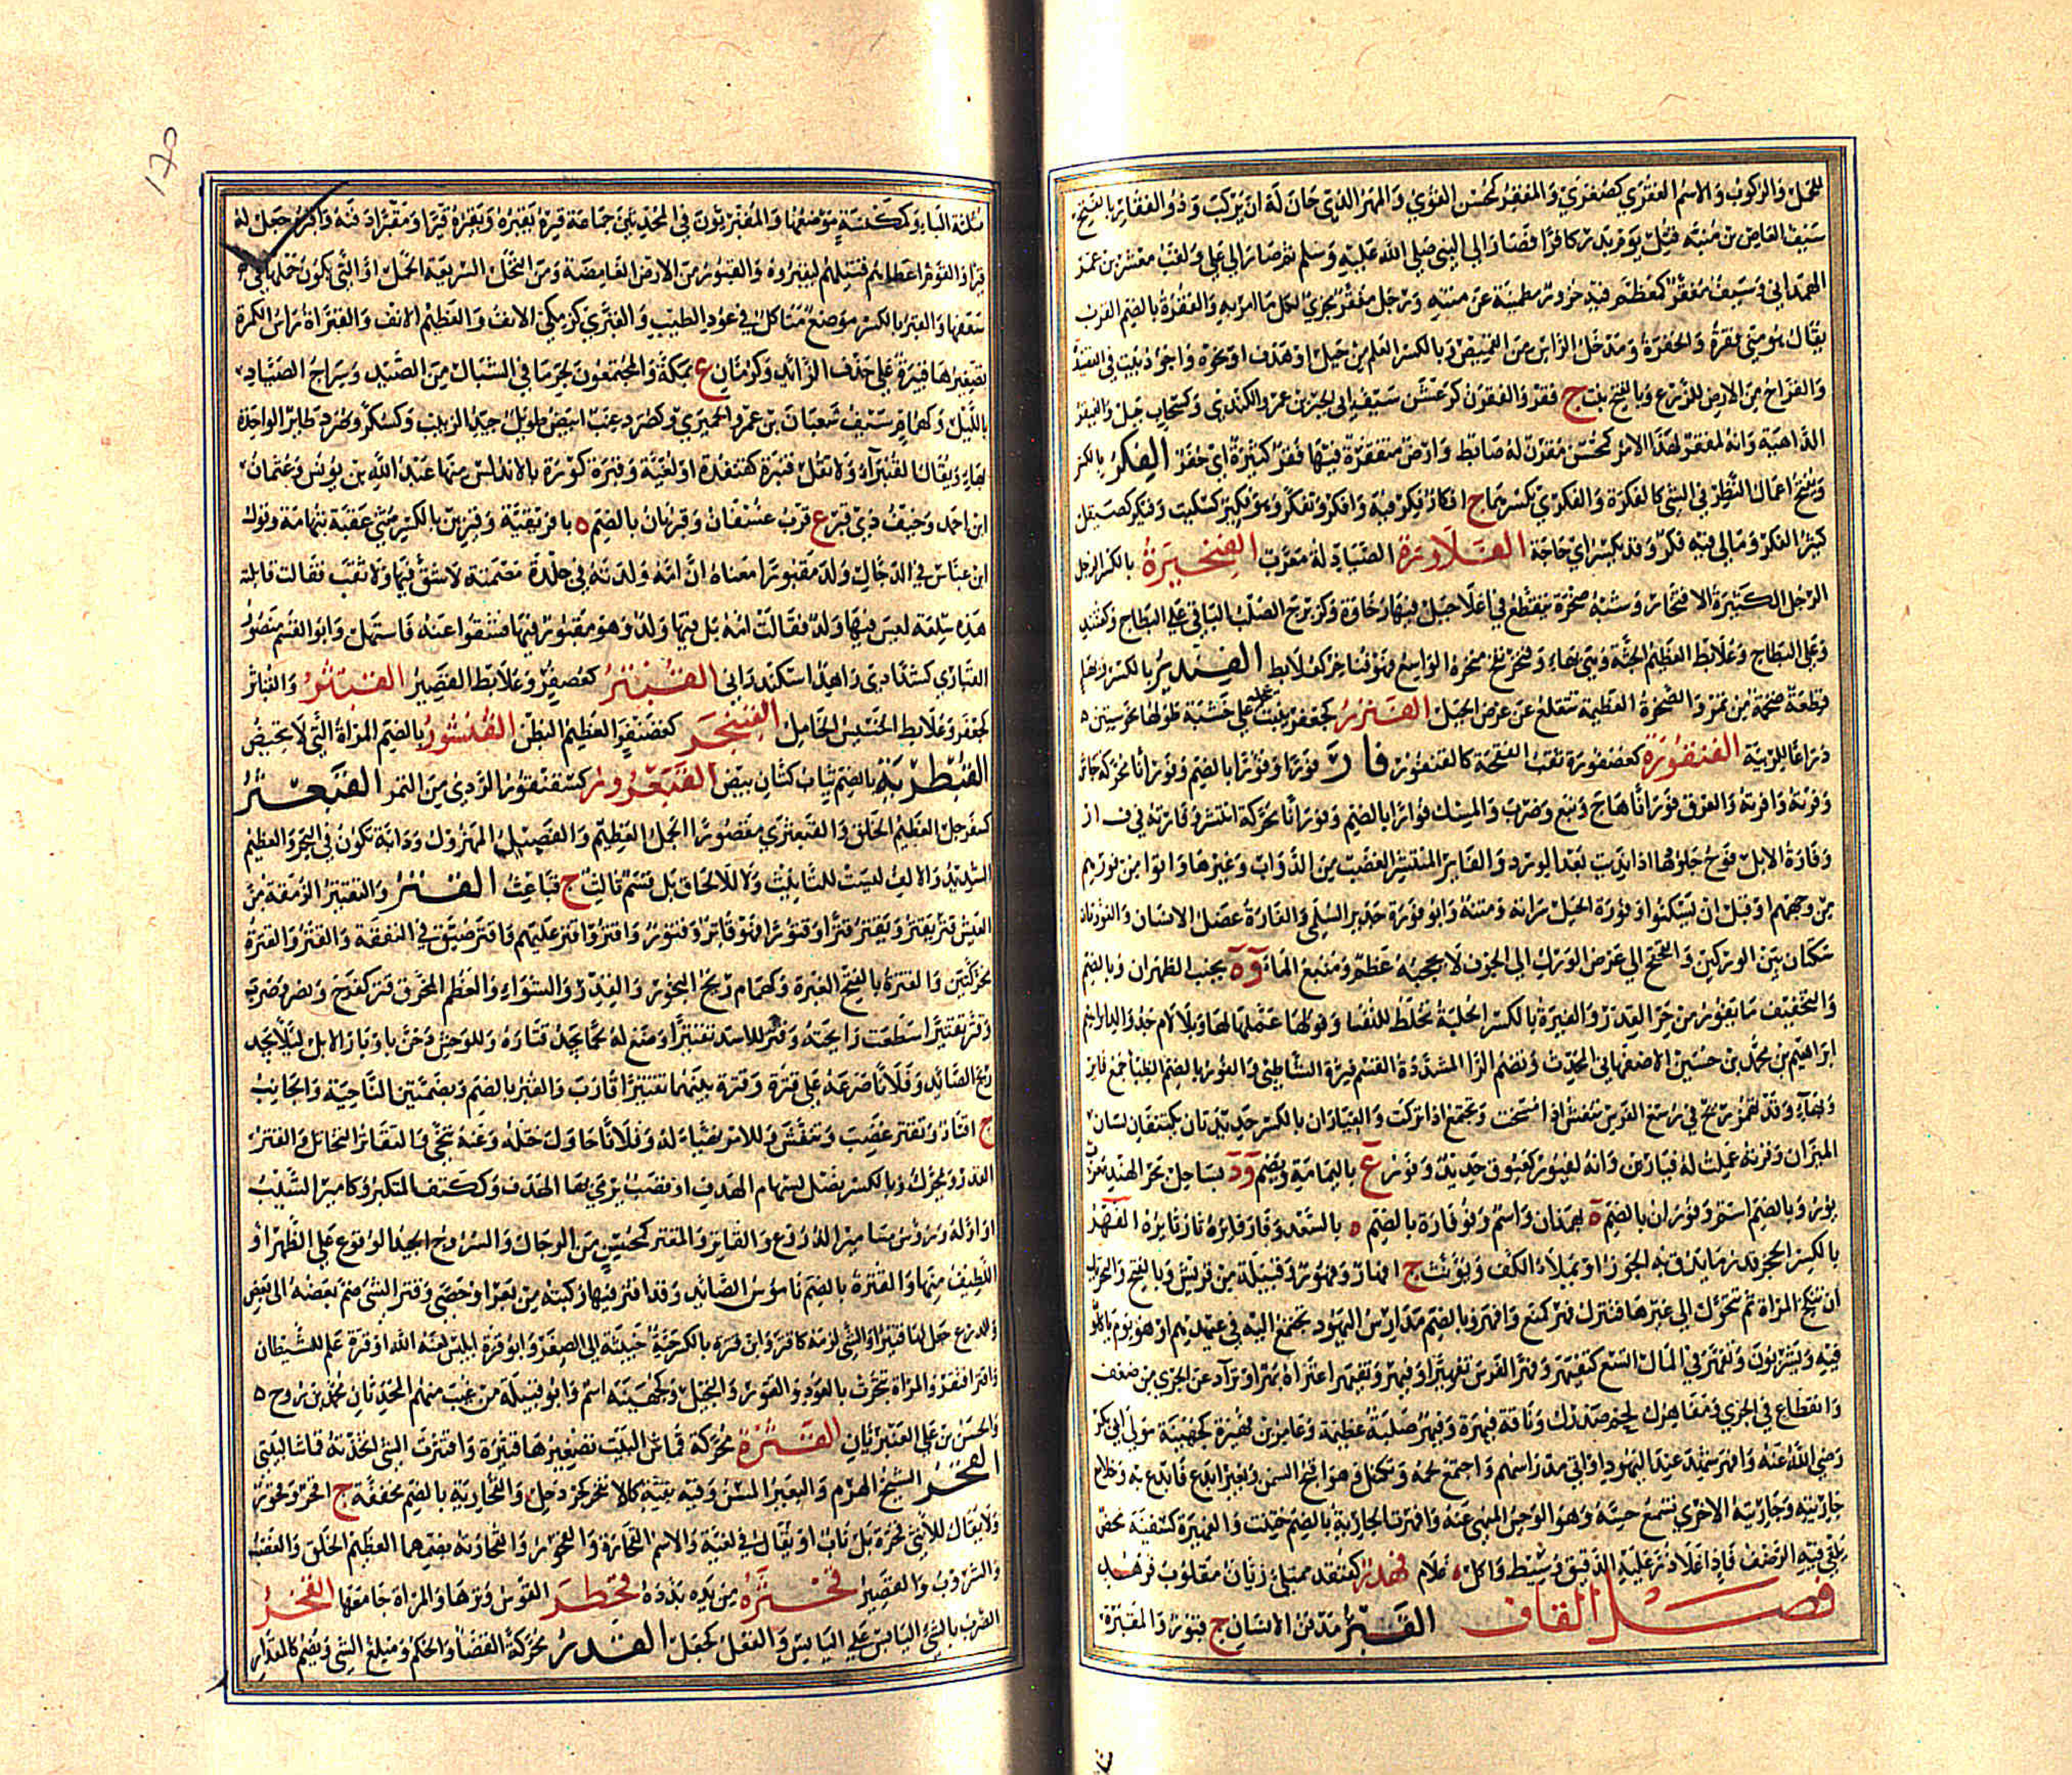 للحمل والركوب والاسم الفقرى كصغرى والمفقر كمحسن القوى والمهر الذى حان له ان يركب وذو الفقار بالفتح
سيف العاص بن منبه قتل يوم بدر كافرا فصار الى النبى صلى الله عليه وسلم ثم صار الى على ولقب معشر بن عمرو
الهمدانى وسيف مفقر كمعظم فيه حزوز مطمئنة عن متنه ورجل مفقر مجزئ لكل ما امر به والفقرة بالضم القرب
يقال هو منى فقرة والحفرة ومدخل الراس من القميص وبالكسر العلم من جبل او هدف او نحوه واجود بيت فى القصيدة
والقراح من الارض للزرع وبالفتح نبت ج فقر والفقرن كرعشن سيف ابى الخير بن عمرو الكندى وكسحاب جبل والفيقر
الداهية وانه لمفقر لهذا الامر كمحسن مقرن له ضابط وارض متفقرة فيها فقر كثيرة اى حفر الفكر بالكسر
ويفتح اعمال النظر فى الشئ كالفكرة والفكرى بكسرهما ج افكار فكر فيه وافكر وفكر وتفكر وهو فكير كسكيت وفيكر كصيقل
كثير الفكر ومالى فيه فكر وقد يكسر اى حاجة الفلاورة الصيادلة معرب الفنخيرة بالكسر الرجل
الرجل الكثيرة الافتخار وشبه صخرة تنقطع فى اعلا جبل فيها رخاوة وكزبرج الصلب الباقى على النطاح وكقنفذ
وعلى النطاح وعلابط العظيم الجثة وهى بهاء وفنخر نفخ منخره الواسع فهو فناخر كعلابط الفندير بالكسر وبهاء
قطعة ضخمة من تمر والصخرة العظيمة تنقلع عن عرض الجبل الفنزر كجعفر بيت على خشبة طولها نحو ستين
ذراعا للربيئة الفنقورة كعصفورة ثقب الفقحة كالفنقور فار فورا وفؤرا بالضم وفورانا محركة جاش
وفرته وافرته والعرق فورانا هاج ونبع وضرب والمسك فوارا بالضم وفورانا محركة انتشر وفارته فى ف ا ر
وفارة الابل فوح جلودها اذا نديت بعد الورد والفائر المنتشر الغضب من الدواب وغيرها واتوا من فورهم
من وجههم او قبل ان يسكنوا وفورة الجبل سراته ومتنه وابو فورة حدير السلمى والفارة عضل الانسان والفورتان
سكتان بين الوركين والقحقح الى عرض الورك الى الجوف لا يحجبه عظم ومنبع الماء وة بجنب الظهران وبالضم
والتخفيف ما يفور من حر القدر والفيرة بالكسر الحلبة تخلط للنفسا وفور لها عملها لها وبلا لام جد والد ابراهيم
ابراهيم بن محمد بن حسين الاصفهانى المحدث وبضم الرا المشددة القاسم فيره الشاطبى والفور بالضم الظبا جمع فائر
وبهاء وقد تفور ريح فى رسغ الفرس تنفش اذا مسحت وتجتمع اذا تركت والفياران بالكسر حديدتان تكتنفان لسان
الميزان وفرته عملت له فيارين وانه لفيور كعيوق حديد وفورع باليمامة وبضم ود بساحل بحر الهند معرب
بور وبالضم اسم وفوران بالضم ة بهمذان واسم وفوفارة بالضم ة بالسغد وفار فائره ثار ثائره الفهر
بالكسر الحجر قدر ما يدق به الجوز او يملأ الكف ويؤنث ج افهار وفهور وقبيلة من قريش وبالفتح والتحريك
ان تنكح المراة ثم تتحول الى غيرها فتنزل فهر كمنع وافهر وبالضم مدارس اليهود تجتمع اليه فى عيدهم او هو يوم ياكلون
فيه ويشربون وتفهر فى المال اتسع كتفيهر وفهر الفرس تفهيرا وفيهر وتفيهر اعتراه بهر او تراد عن الجرى من ضعف
وانقطاع فى الجرى ومفاهرك لحم صدرك وناقة فيهرة وفيهر صلبة عظيمة وعامر بن فهيرة كجهينة مولى ابى بكر
رضى الله عنه وافهر شهد عيد اليهود او اتى مدراسهم واجتمع لحمه وتكتل فهو اقبح السمن وبعيره ابدع فابدع به وخلا مع
جاريته وجاريته الاخرى تسمع حسه وهو الوجس المنهى عنه وافهرت الجارية بالضم ختنت والفهيرة كسفينة محض
يلقى فيه الرضف فاذا غلا ذر عليه الدقيق وسيط واكل ة غلام فهدر كقنفذ ممتلئ ريان مقلوب فرهد
فصل القاف القبر مدفن الانسان ج قبور والمقبرة
مثلثة الباء وكمكنسة موضعها والمقبريون فى المحدثين جماعة قبره يقبره ويقبره قبرا ومقبرا دفنه واقبره جعل له
قبرا والقوم اعطاهم قتيلهم ليقبروه والقبور من الارض الغامضة ومن النخل السريعة الحمل او التى يكون حملها فى
سعفها والقبر بالكسر موضع متاكل فى عود الطيب والقبرى كزمكى الانف والعظيم الانف والقبراة راس الكمرة
تصغيرها قبيرة على حذف الزائد وكرمان ع بمكة والمجتمعون بجر ما فى الشباك من الصيد وسراج الصياد
بالليل وكهمام سيف شعبان بن عمرو الحميرى وكصرد عنب ابيض طويل جيد الزبيب وكسكر وصرد طائر الواحدة
بهاء ويقال القنبراء ولا تقل قنبرة كقنفذة او لغية وقبرة كورة بالاندلس منها عبد الله بن يونس وعثمان
ابن احمد وخيف ذى قبر ع قرب عسفان وقبريان بالضم ة بافريقية وقبرين بالكسر مثنى عقبة بتهامة وقول
ابن عباس فى الدجال ولد مقبورا معناه ان امه ولدته فى جلدة مصمتة لا شق فيها ولا ثقب فقالت قابلته
هذه سلعة ليس فيها ولد فقالت امه بل فيها ولد وهو مقبور فيها فشقوا عنه فاستهل وابو القاسم منصور
القبارى كشدادى زاهد اسكندرانى القبنتر كعصفر وعلابط القصير القبثر والقباثر
كجعفر وعلابط الخسيس الخامل القبنجر كغضنفر العظيم البطن القبشور بالضم المراة التى لا تحيض
القبطرية بالضم ثياب كتان بيض القبعرور كسقنقور الردى من التمر القبعثر
كسفرجل العظيم الخلق والقبعثرى مقصورا الجمل العظيم والفصيل المهزول ودابة تكون فى البحر والعظيم
الشديد والالف ليست للتانيث ولا للالحاق بل قسم ثالث ج قباعث القتر والتقتير الرمقة من
العيش قتر يقتر ويقتر قترا وقتورا فهو قاتر وقتور واقتر وقتر عليهم واقتر ضيق فى النفقة والقتر والقترة
محركتين والقترة بالفتح الغبرة وكهمام ريح البخور والقدر والشواء والعظم المحرق قتر كفرح ونصر وضرب
وقتر تقتيرا سطعت رايحته وقتر للاسد تقتيرا وضع له لحما يجد قتاره وللوحش دخن باوبار الابل ليلا يجد
ريح الصائد وفلانا صرعه على قترة وقترة بينهما تقتيرا قارب والقتر بالضم وبضمتين الناحية والجانب
ج اقتار وتقتر غضب وتنفش وللامر تهيأ له وفلانا حاول ختله وعنه تنحى والتقاتر التخاتل والقتر
القدر ويحرك وبالكسر نصل لسهام الهدف او قصب يرمى بها الهدف وككتف المتكبر وكامير الشيب
او اوله ورؤس مسامير الدروع والقاتر والمقتر كمحسن من الرحال والسروج الجيد الوقوع على الظهر او
اللطيف منها والقترة بالضم ناموس الصائد وقد اقتتر فيها وكثبة من بعر او حصى وقتر الشئ ضم بعضه الى بعض
وللدرع جعل لها قتيرا والشئ لزمه كاقتر وابن قترة بالكسر حية خبيثة الى الصغر وابو قترة ابليس لعنه الله او قترة علم للشيطان
واقتر افتقر والمراة تبخرت بالعود والقتور والبخيل وكجهينة اسم وابو قبيلة من تجيب منهم المحدثان محمد بن روح
والحسن بن على القتيريان القثرة محركة قماش البيت تصغيرها قثيرة واقتثرت الشئ اخذته قماشا لبيتى
القحر الشيخ الهرم والبعير المسن وفيه بقية كالانقحر كجردحل والقحارية بالضم مخففة ج اقحر وقحور
ولا يقال للانثى قحرة بل ناب او يقال فى لغية والاسم القحارة والقحورة والقحارية بضمهما العظيم الخلق والغضب
والشروب والقصير قحثرة من يده بدده قحطر القوس وترها والمراة جامعها القخر
الضرب بالشئ اليابس على اليابس والفعل كجعل القدر محركة القضاء والحكم ومبلغ الشئ ويضم كالمقدار